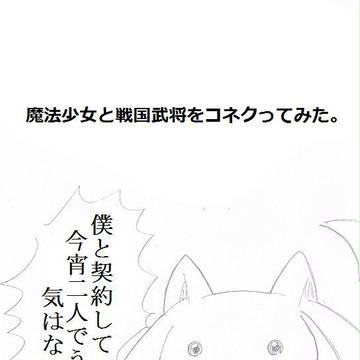 魔法少女と戦国武将をコネクってみた。
僕と契約して
今宵二人で
気はな